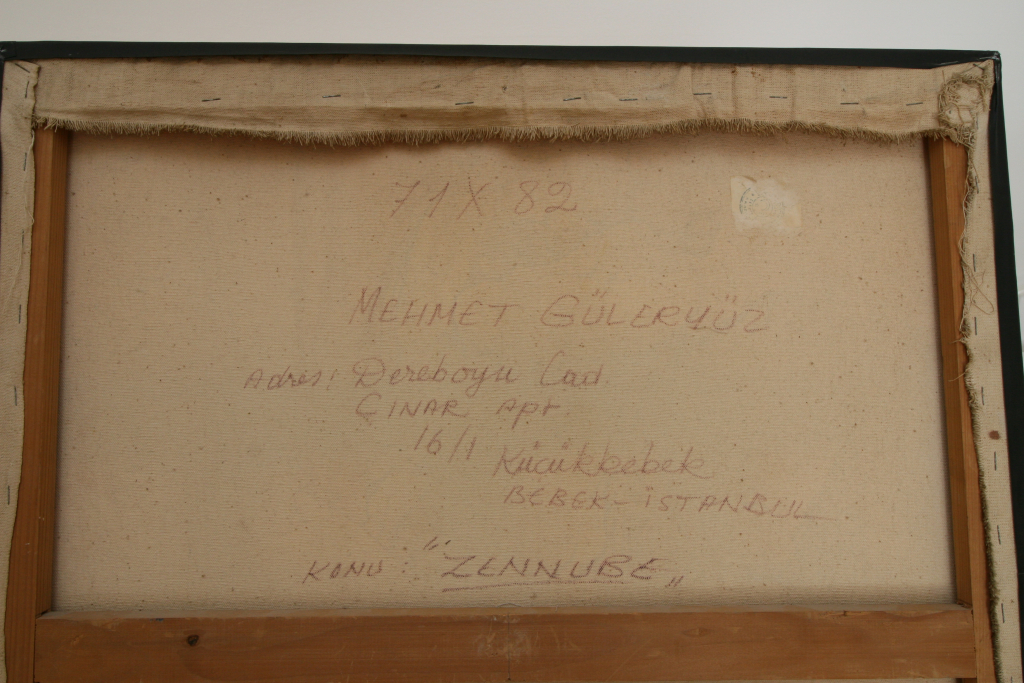 71 X 82
MEHMET GÜLERYÜZ
Adres: Dereboyu Cad.
ÇINAR Apt.
16/1 Küçükbebek
BEBEK - İSTANBUL
KONU : "ZENNUBE"